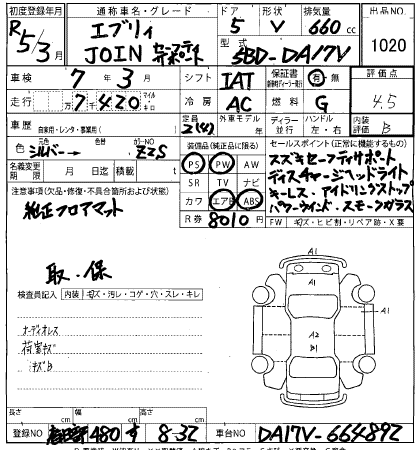 初度登録年月 通称車名・グレード ドア 形状 排気量 出品NO
R5/3月 エブリィ 5 V 660cc
JOIN セーフティサポート 型式 3BD-DA17V 1020
車検 7年3月 シフト IAT 保証書 有・無 評価点
走行 7千420 マイル キロ 冷房 AC 燃料 G 4.5
車歴 自家用・レンタ・事業用( ) 定員 2(4) 外車モデル 年 ディーラー 並行 ハンドル 左・右 内装評価 B
色 元色 シルバー→ カラーNO Z2S 装備品(純正品に限る) セールスポイント(正常に機能するもの)
名義変更期限 月 日 積載 t PS PW AW スズキセーフティサポート
注意事項(欠品・修復・不具合箇所および状態) SR TV ナビ ディスチャージヘッドライト
純正フロアマット カワ エアB ABS キーレス、アイドリングストップ
R券 8010円 パワーウインド、スモークガラス
FW キズ・ヒビ割・リペア跡・X要
取・保
検査員記入 内装 キズ・汚レ・コゲ・穴・スレ・キレ
A1
A1
オーディオレス
A2
荷室キズ
B1
キズB
A1
長さ cm 幅 cm 高さ cm
登録NO 480 す 8-32 車台NO DA17V-664892